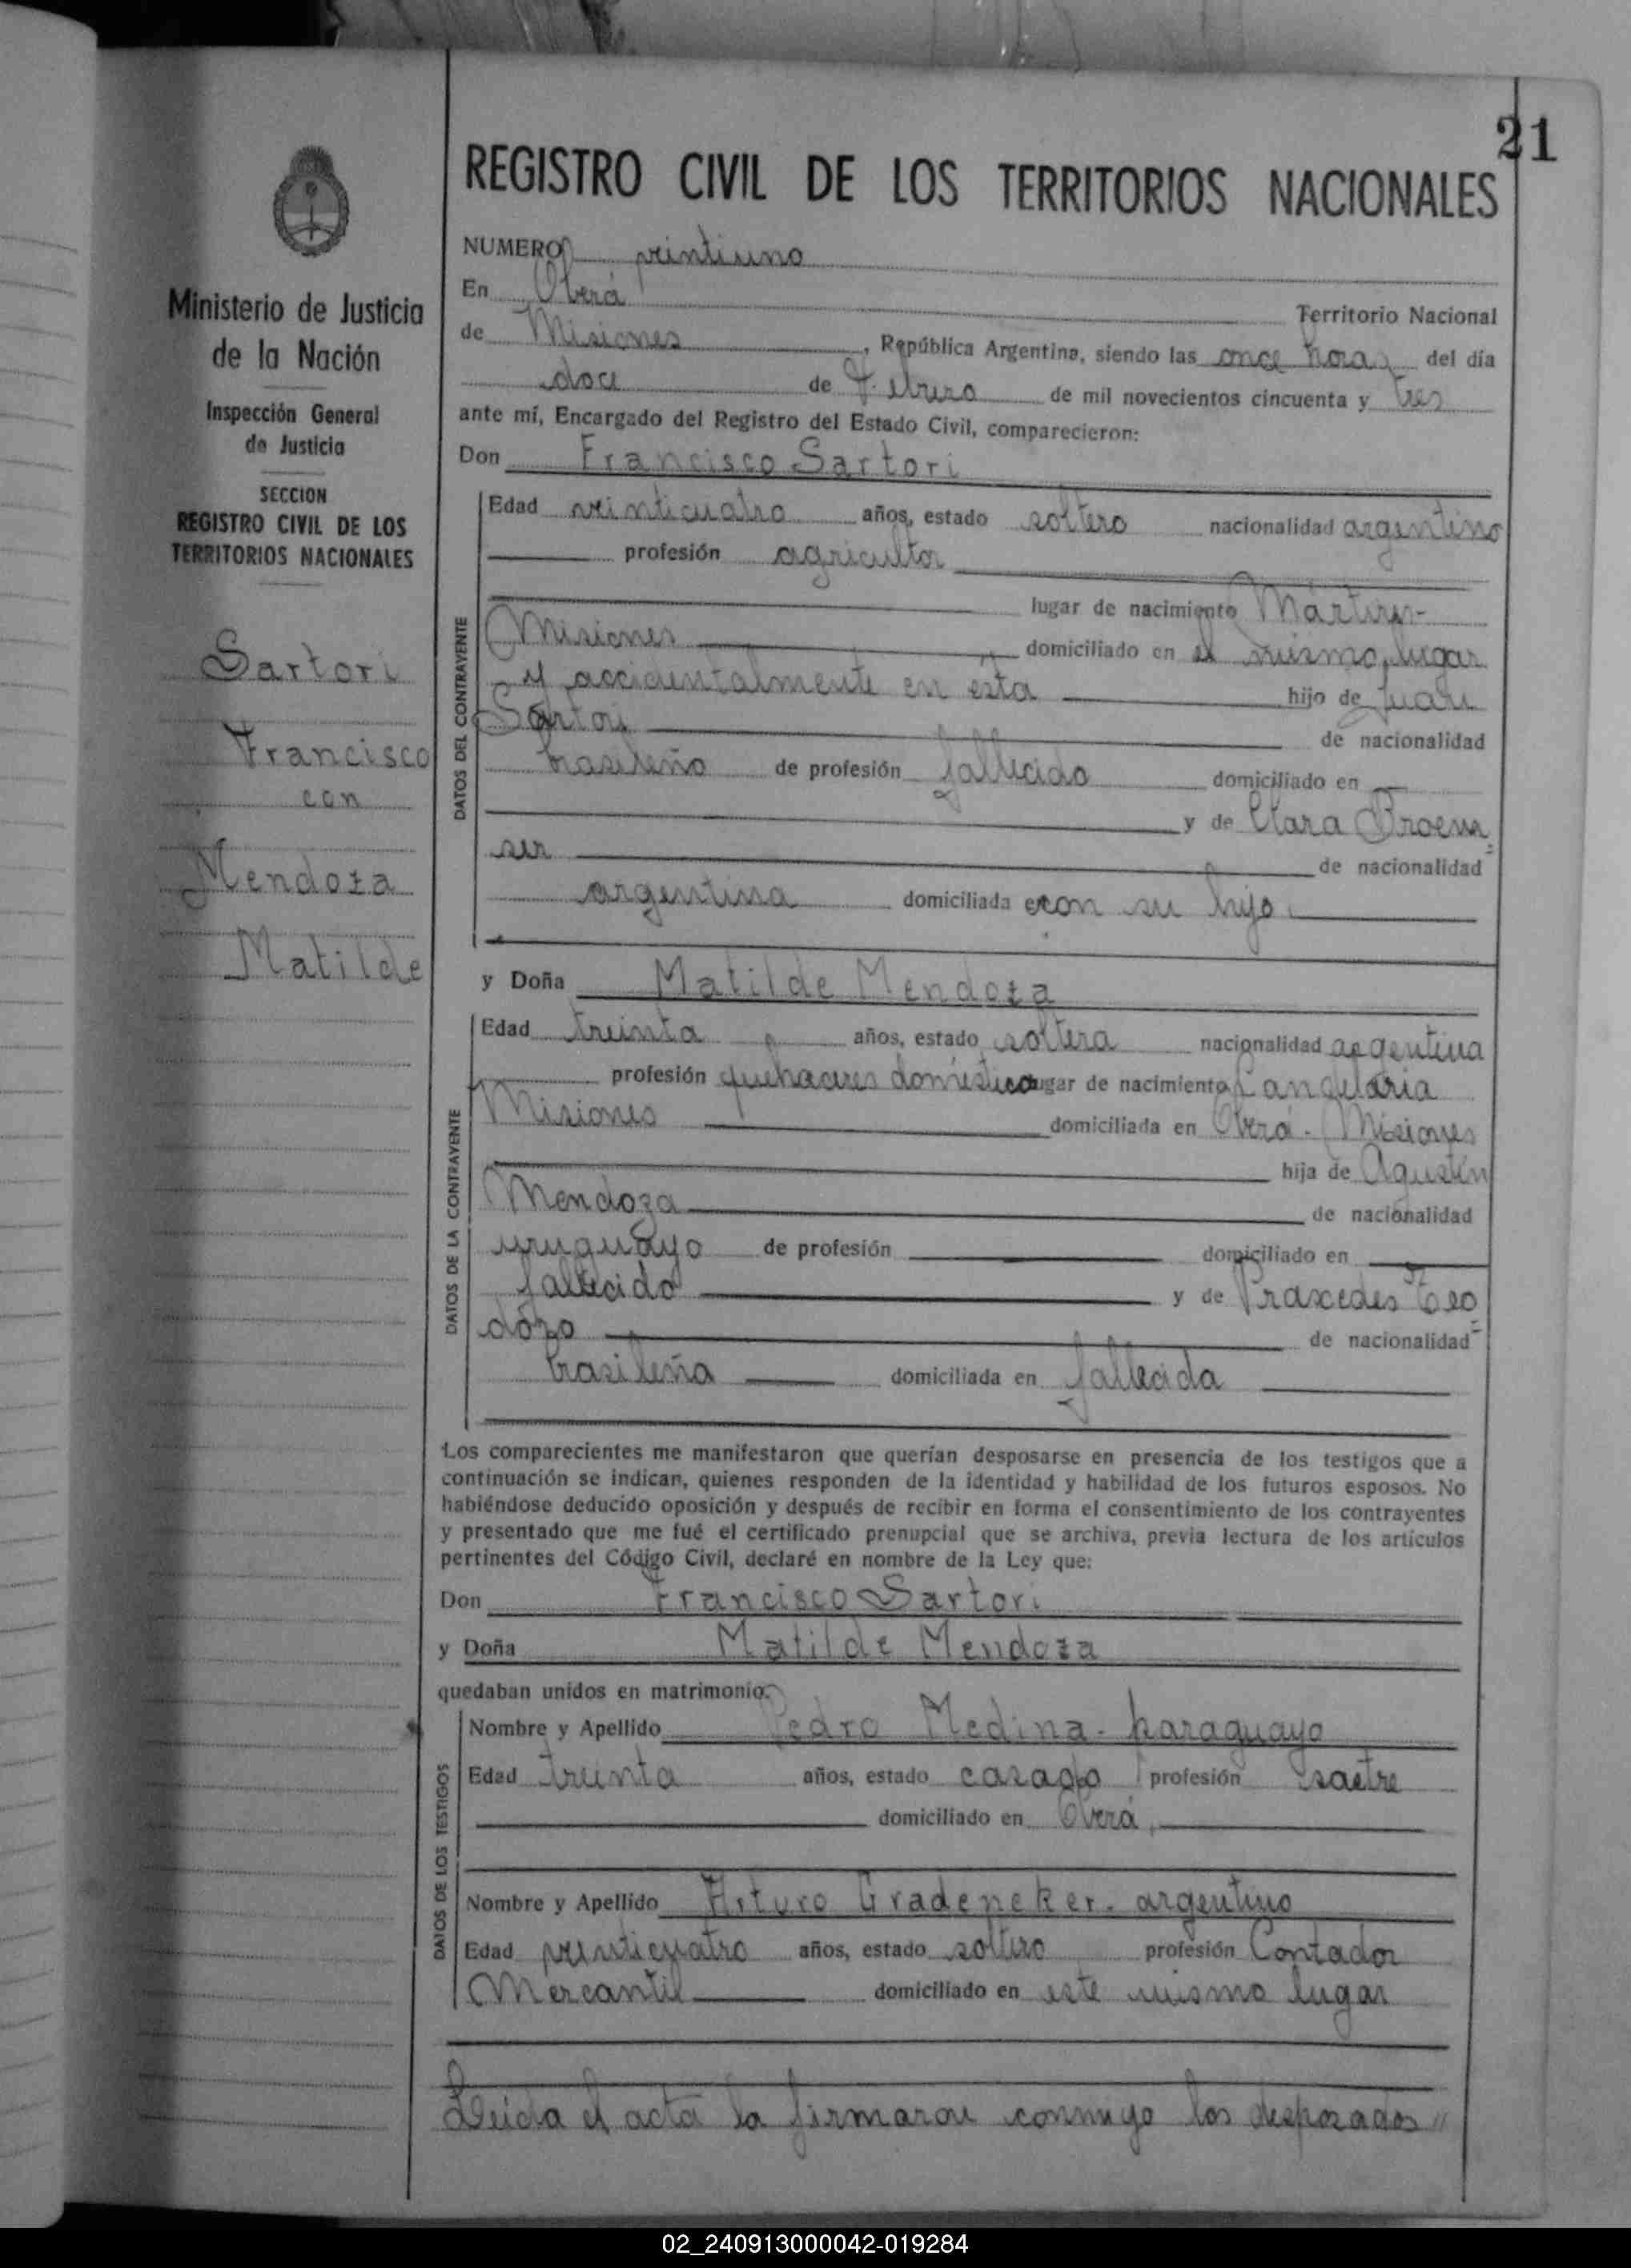 21
REGISTRO CIVIL DE LOS TERRITORIOS NACIONALES
Ministerio de Justicia
de la Nación
Inspección General
de Justicia
SECCION
REGISTRO CIVIL DE LOS
TERRITORIOS NACIONALES
Sartori
Francisco
con
Mendoza
Matilde
NUMERO veintiuno
En Oberá Territorio Nacional
de Misiones, República Argentina, siendo las once horas del día
doce de Febrero de mil novecientos cincuenta y tres
ante mí, Encargado del Registro del Estado Civil, comparecieron:
Don Francisco Sartori
DATOS DEL CONTRAYENTE
Edad veinticuatro años, estado soltero nacionalidad argentino
profesión agricultor
lugar de nacimiento Mártires-
Misiones domiciliado en el mismo lugar
y accidentalmente en ésta hijo de Juan
Sartori de nacionalidad
brasileño de profesión fallecido domiciliado en
y de Clara Proenn=
ser de nacionalidad
argentina domiciliada en con su hijo.
y Doña Matilde Mendoza
DATOS DE LA CONTRAYENTE
Edad treinta años, estado soltera nacionalidad argentina
profesión quehaceres domésticos lugar de nacimiento Candelaria
Misiones domiciliada en Oberá. Misiones
hija de Agustín
Mendoza de nacionalidad
uruguayo de profesión domiciliado en
fallecido y de Praxedes
de nacionalidad
brasileña domiciliada en fallecida
Los comparecientes me manifestaron que querían desposarse en presencia de los testigos que a
continuación se indican, quienes responden de la identidad y habilidad de los futuros esposos. No
habiéndose deducido oposición y después de recibir en forma el consentimiento de los contrayentes
y presentado que me fué el certificado prenupcial que se archiva, previa lectura de los artículos
pertinentes del Código Civil, declaré en nombre de la Ley que:
Don Francisco Sartori
y Doña Matilde Mendoza
quedaban unidos en matrimonio.
DATOS DE LOS TESTIGOS
Nombre y Apellido Pedro Medina - paraguayo
Edad treinta años, estado casado profesión sastre
domiciliado en Oberá.
Nombre y Apellido Arturo Gradeneker. argentino
Edad veinticuatro años, estado soltero profesión Contador
Mercantil domiciliado en este mismo lugar
Leida el acta la firmaron conmigo los desposados //
02_240913000042-019284